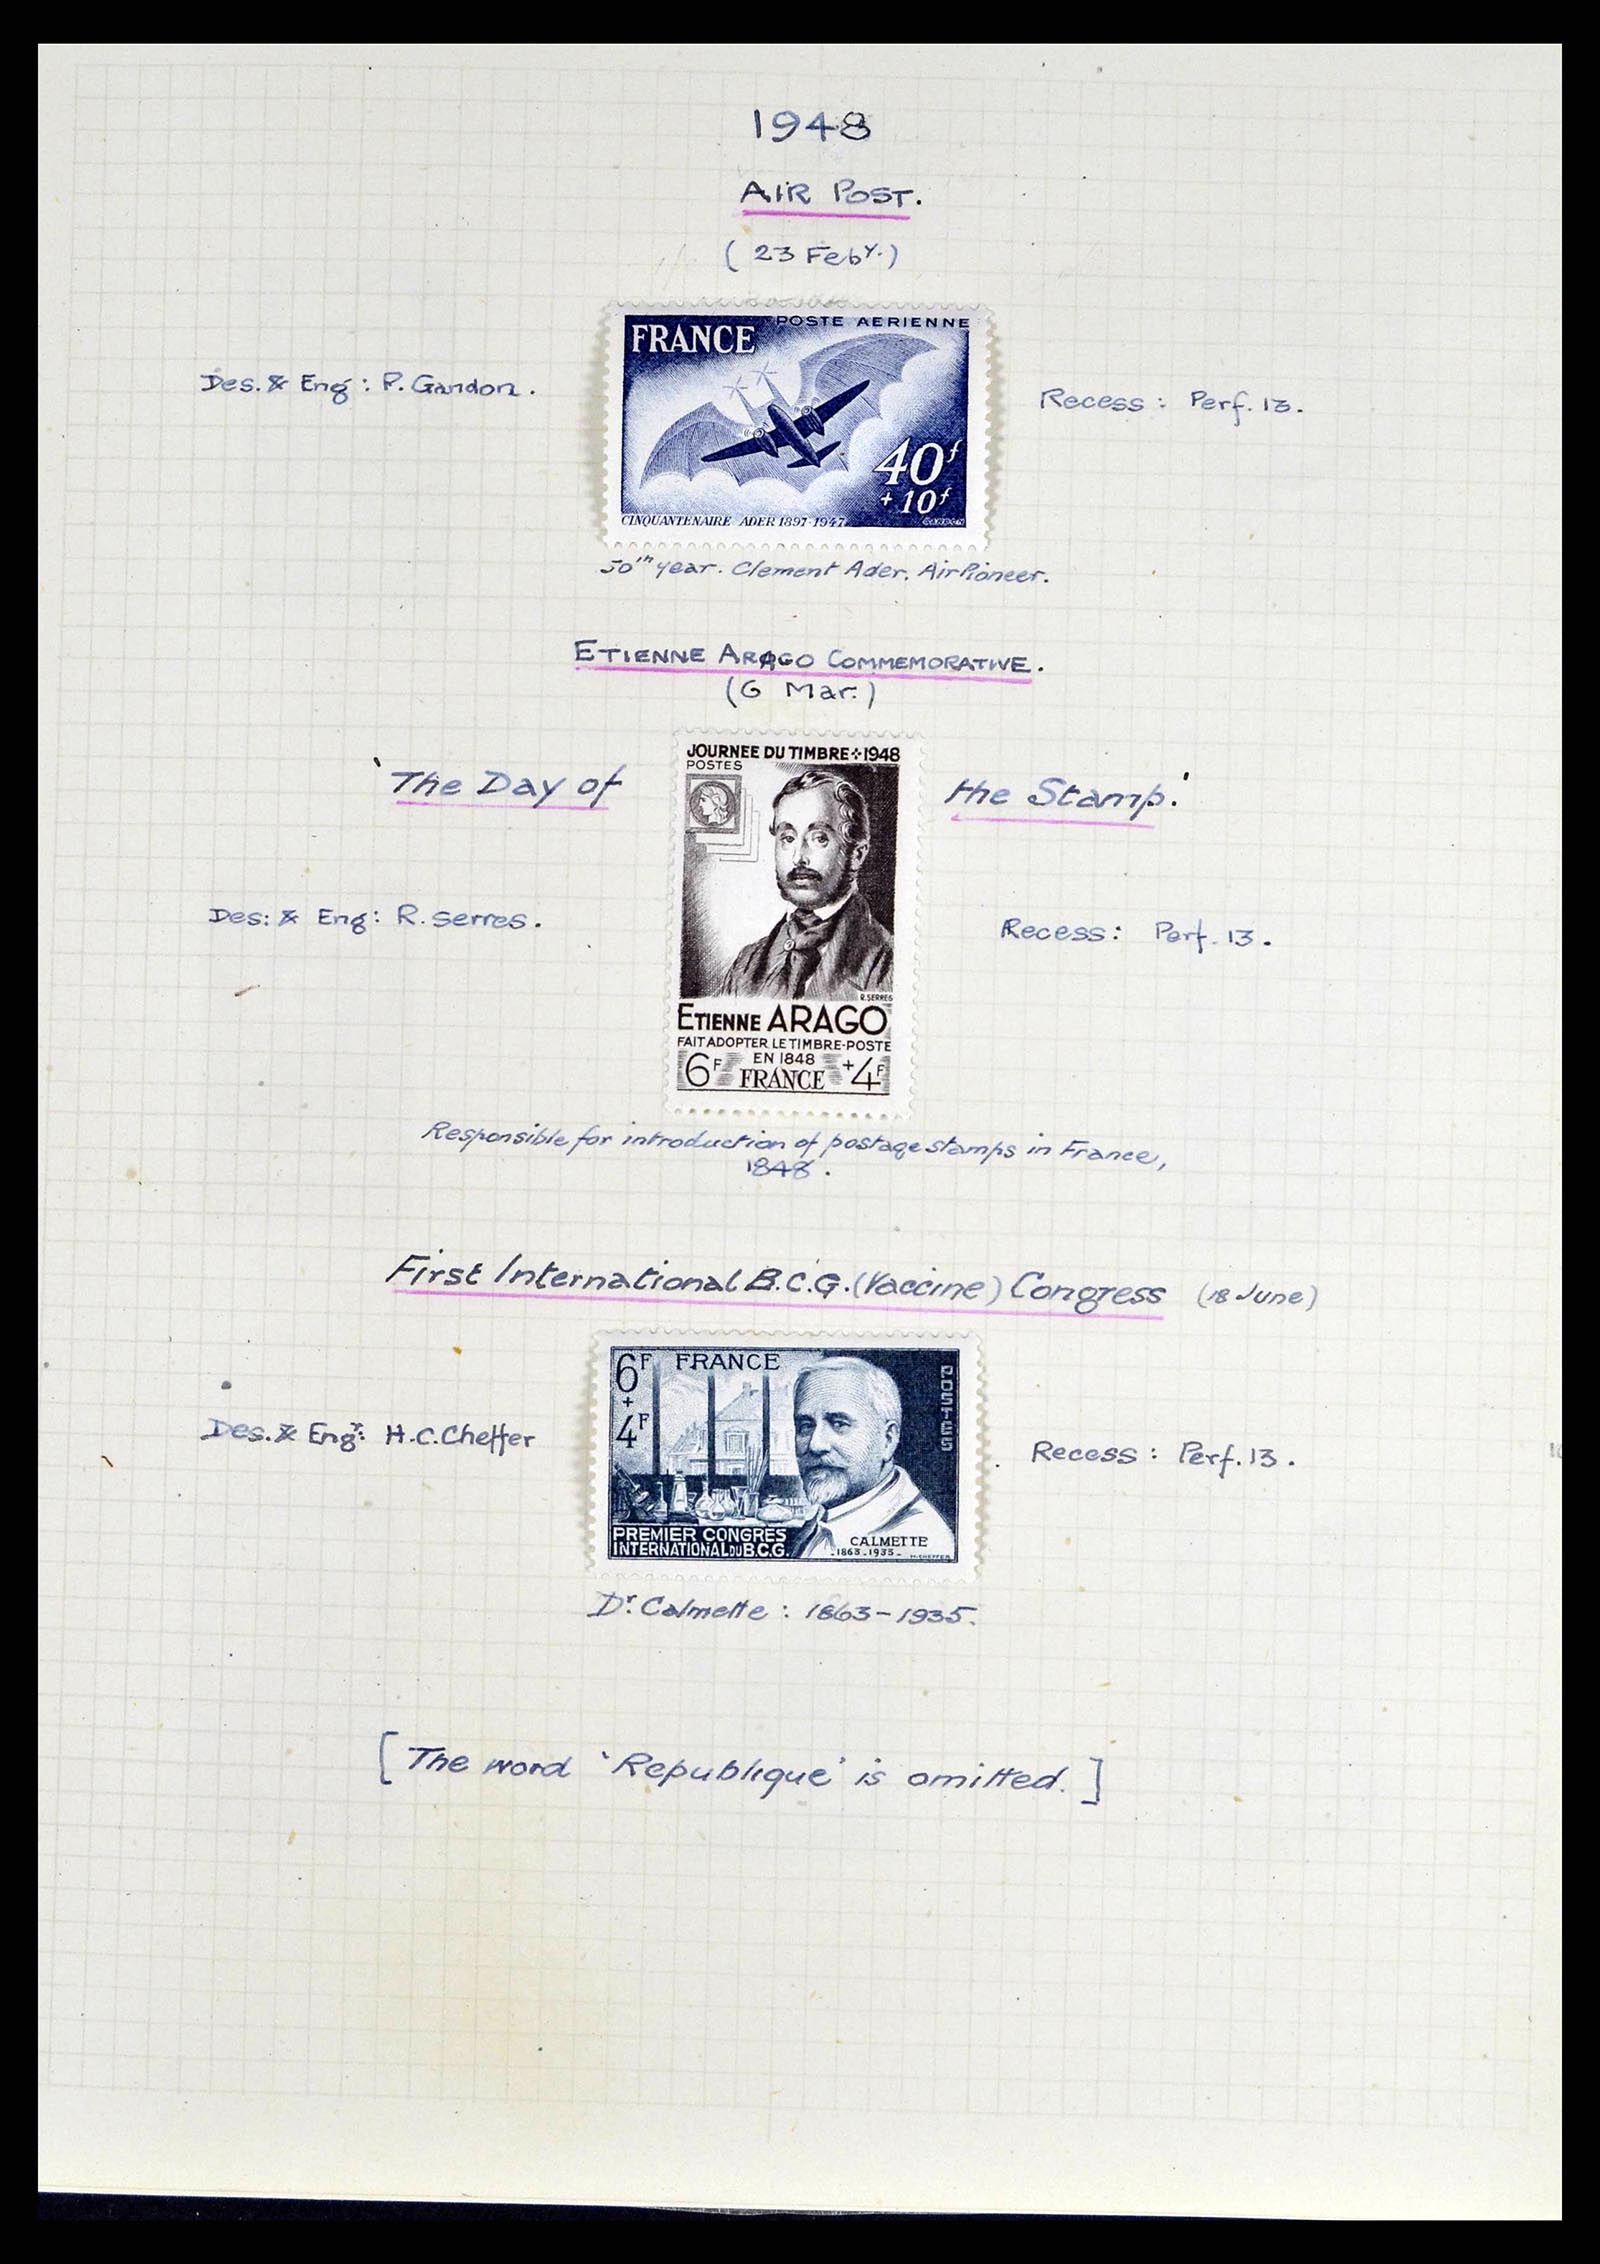 1948
AIR POST.
(23 Feby.)
POSTE AERIENNE
FRANCE
Des. & Eng: P. Gandon.
Recess: Perf. 13.
40f
+10f
CINQUANTENAIRE ADER 1897-1947
GANDON
50th year. Clement Ader. Air Pioneer.
ETIENNE ARAGO COMMEMORATIVE.
(6 Mar.)
JOURNEE DU TIMBRE 1948
POSTES
'The Day of
the Stamp.'
Des: & Eng: R. Serres.
Recess: Perf. 13.
R. SERRES
ETIENNE ARAGO
FAIT ADOPTER LE TIMBRE-POSTE
EN 1848
6F FRANCE +4F
Responsible for introduction of postage stamps in France,
1848.
First International B.C.G. (Vaccine) Congress (18 June)
6F FRANCE
+
4F
POSTES
Des. & Engr: H.C. Cheffer
Recess: Perf. 13.
PREMIER CONGRÈS
INTERNATIONAL DU B.C.G.
CALMETTE
-1863-1935-
H-CHEFFER
Dr. Calmette: 1863-1935.
[The word 'Republique' is omitted.]